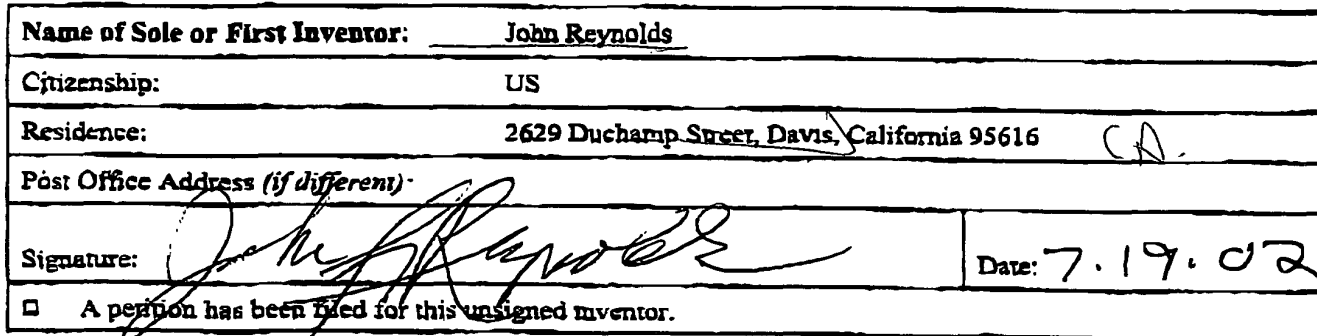 Name of Sole or First Inventor: John Reynolds
Citizenship: US
Residence: 2629 Duchamp Street, Davis, California 95616 CA.
Post Office Address (if different)
Signature: John Reynolds Date: 7.19.02
□ A petition has been filed for this unsigned inventor.